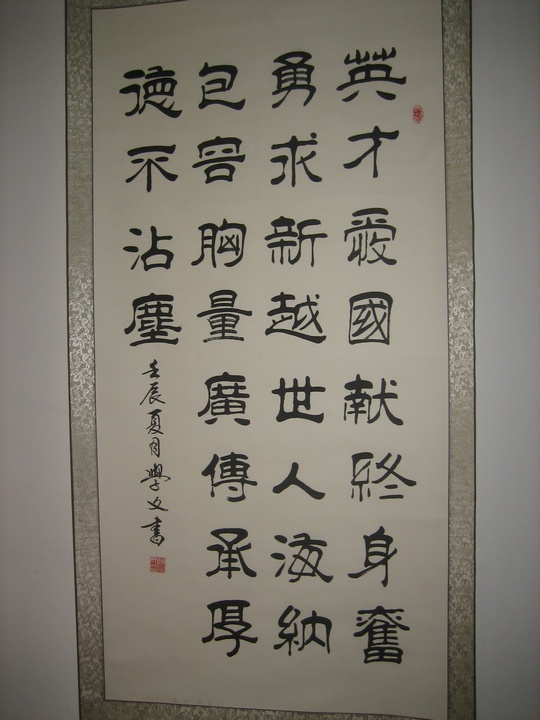 英才愛國献終身奮
勇求新越世人海納
包容胸量廣傳承厚
德不沾塵
壬辰夏月學文書